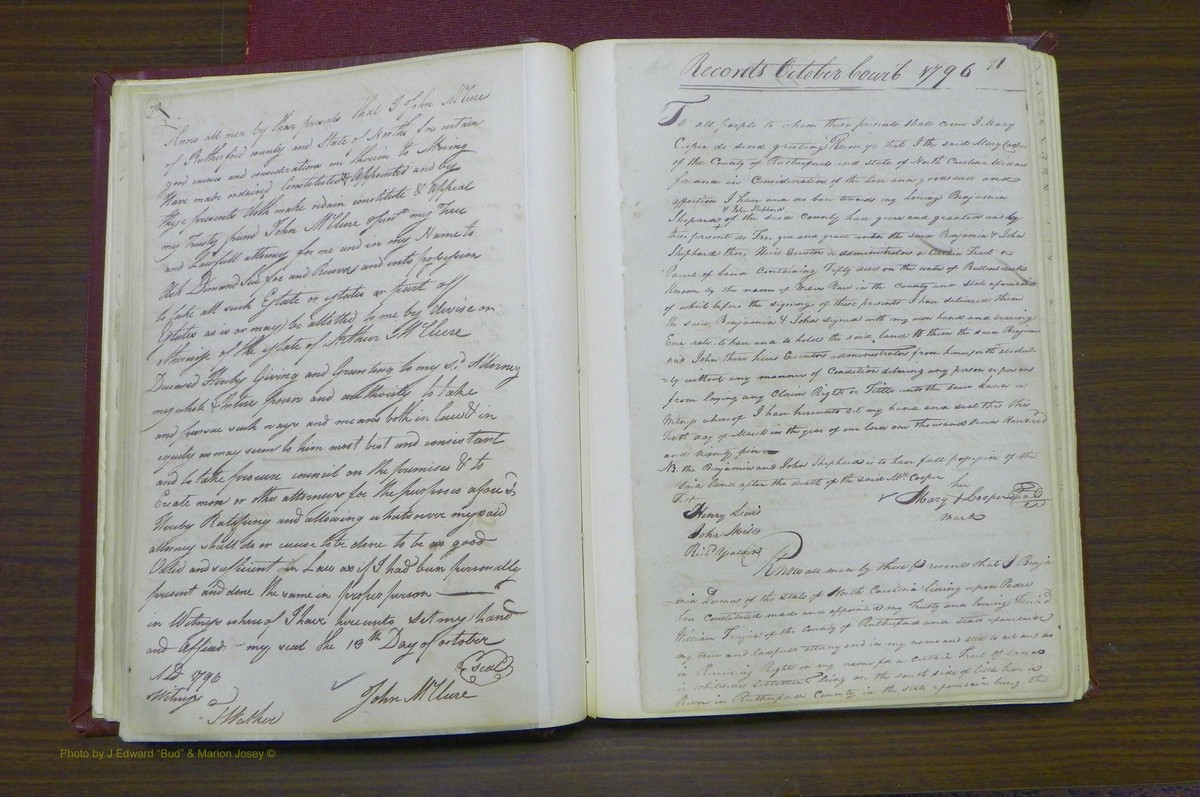 70
Know all men by these presents that I John McClure
of Rutherford county and State of North for certain
good causes and considerations me thereun to Moving
Have made ordained Constituted & Appointed and by
these presents doth make ordain constitute & Appeal
my Trusty friend John McClure Junr my True
and Lawfull attorney for me and in my Name to
Ask Demand Sue for and Recover and into possession
to take all such Estate or estates or part off
Estates as is or may be allotted to me by devise or
otherwise of the estate of Arthur McClure
Deceased Hereby Giving and Granting to my sd Attorney
my whole & Intire power and authority to take
and pursue such ways and means both in Law & in
equity as may seem to him most best and consistant
and to take procure council on the premises & to
Create more or other attorneys for the purposes aforesd
Hereby Ratifying and allowing whatsoever my said
attorney shall do or cause to be done to be as good
Valid and sufficient in Law as if I had been personally
present and done the same in proper person
in Witness where of I have here unto set my hand
and Affixed my seal the 13th Day of october
AD 1796 Seal
Witness John McClure
J Walker
Records October Court 1796 71
To all people to whom these presents shall come I Mary
Cooper do send greeting Know ye that I the said Mary Cooper
of the County of Rutherford and state of North Carolina
for and in Consideration of the love and good will and
affection I have and do bear towards my loving Benjamin
& John Shepherd
Shepard of the said County have given and granted and by
these presents do Free give and grant unto the said Benjamin & John
Shepherd their Heirs Executors or administrators a Certain Tract or
Parcel of Land Containing Fifty acres on the waters of
known by the name of in the County and State aforesaid
of which before the signing of these presents I have delivered them
the said Benjamin & John signed with my own hand and bearing
Even date to have and to hold the said land to them the said Benjamin
and John their heirs Executors administrators from henceforth absolut
=ly without any manner of Condition debaring any person or persons
from laying any Claim Right or Title unto the said land in
Witness whereof I have hereunto set my hand and seal this the
Tenth day of March in the year of our Lord one thousand seven hundred
and ninety five
NB. the Benjamin and John Shepherd is to have full possession of the
said land after the death of the said Mary Cooper
Test her
Henry Mary + Cooper Seal
John mark
Richd
Know all men by these Presents that I Benja
=min of the state of North Carolina living upon Pedee
have Constituted made and appointed my Trusty and loving friend
William of the County of Rutherford and state aforesaid
my true and lawfull attorney and in my name and stead to act and do
in Receiving Right in my name for a Certain Tract of Land
in settlement lying on the south side of
River in Rutherford County in the state aforesaid being the
Photo by J Edward "Bud" & Marion Josey ©